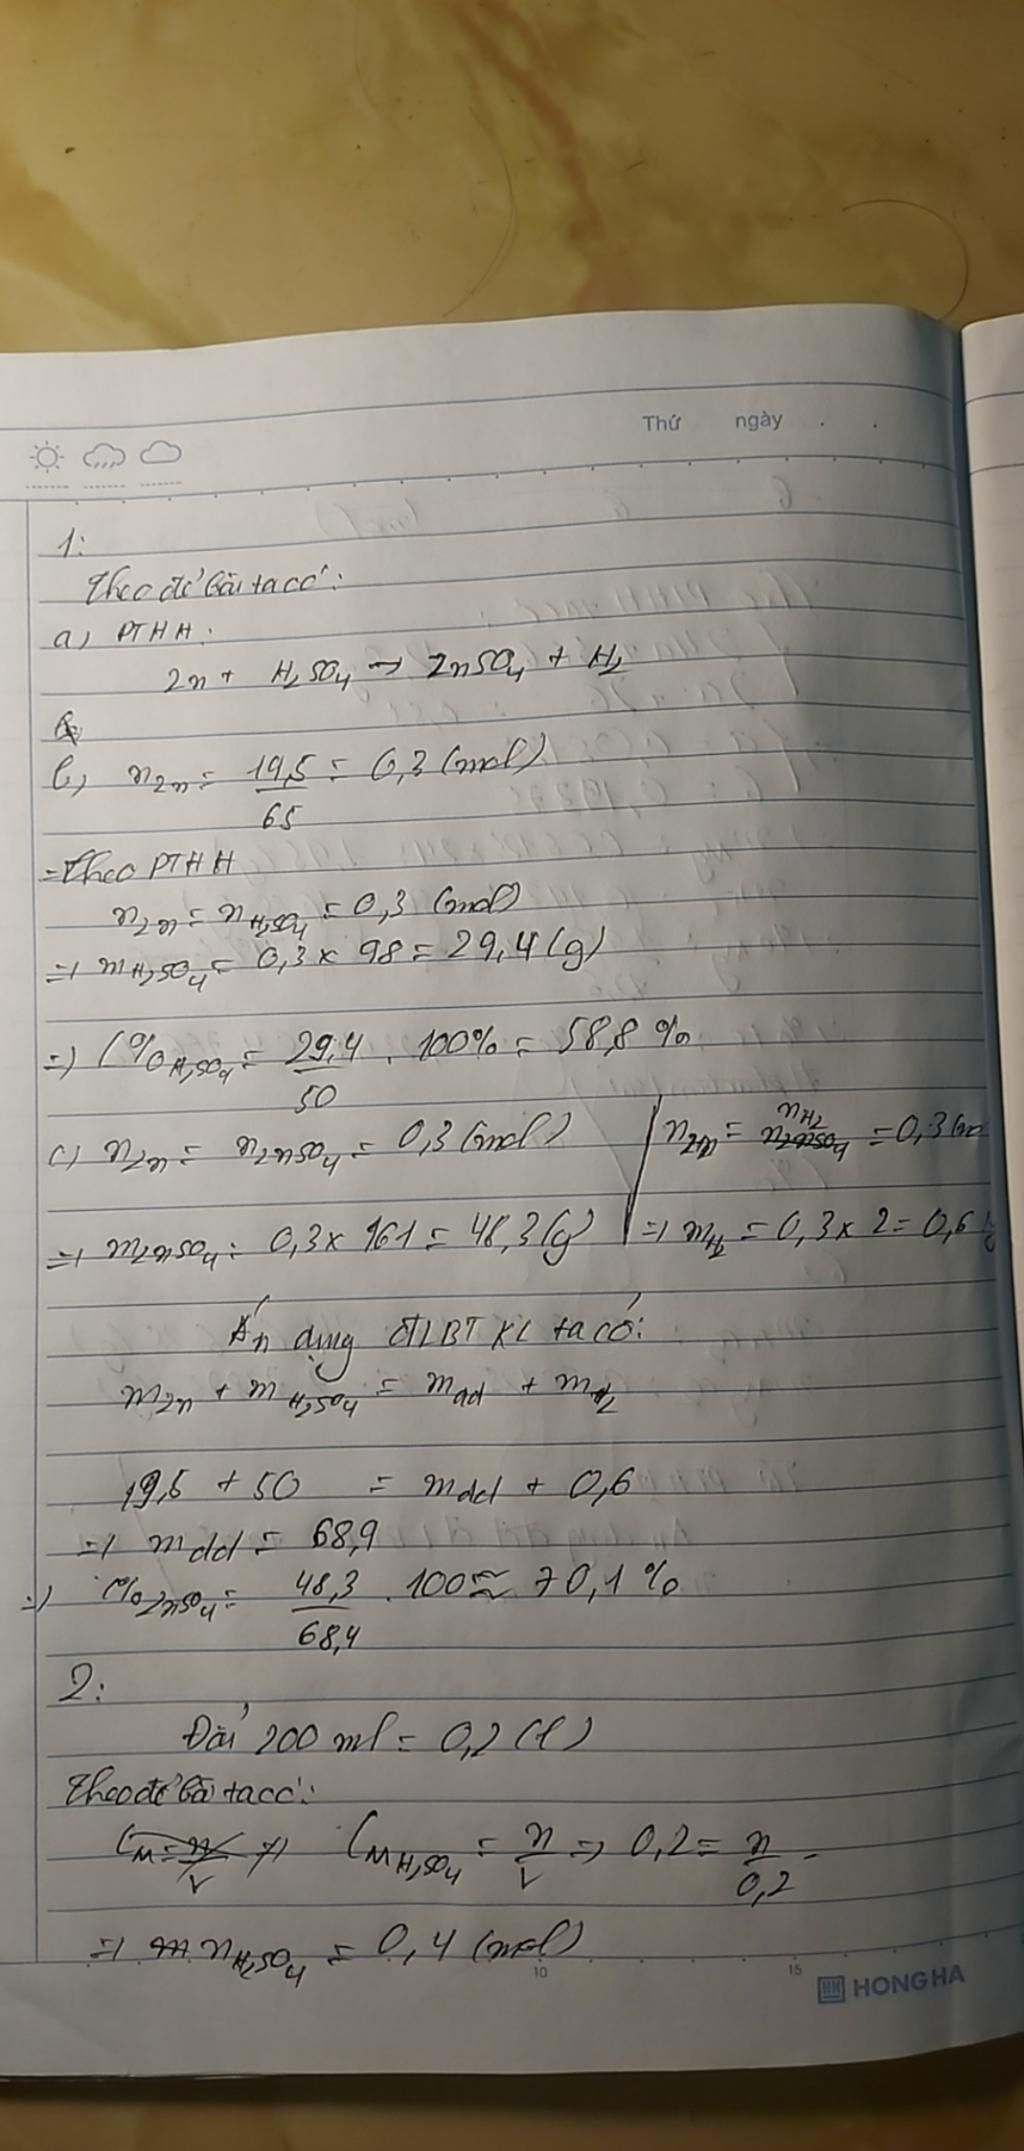 Thứ ngày
1:
Theo đề bài ta có:
a) PTHH:
Zn + H₂SO₄ → ZnSO₄ + H₂
b) nZn = 19,5/65 = 0,3 (mol)
=Theo PTHH
nZn = nH₂SO₄ = 0,3 (mol)
=> mH₂SO₄ = 0,3 x 98 = 29,4 (g)
=> C%H₂SO₄ = 29,4/50 . 100% = 58,8 %
c) nZn = nZnSO₄ = 0,3 (mol) | nZn = nH₂ = 0,3 (mo
=> mZnSO₄ = 0,3 x 161 = 48,3 (g) | => mH₂ = 0,3 x 2 = 0,6 (g
Áp dụng ĐLBTKL ta có:
mZn + mH₂SO₄ = mdd + mH₂
19,5 + 50 = mdd + 0,6
=> mdd = 68,9
=> C%ZnSO₄ = 48,3/68,4 . 100 ≈ 70,1 %
2:
Đổi 200 ml = 0,2 (l)
Theo đề bài ta có:
CM H₂SO₄ = n/V => 0,2 = n/0,2
=> nH₂SO₄ = 0,4 (mol)
10 15
HONG HA